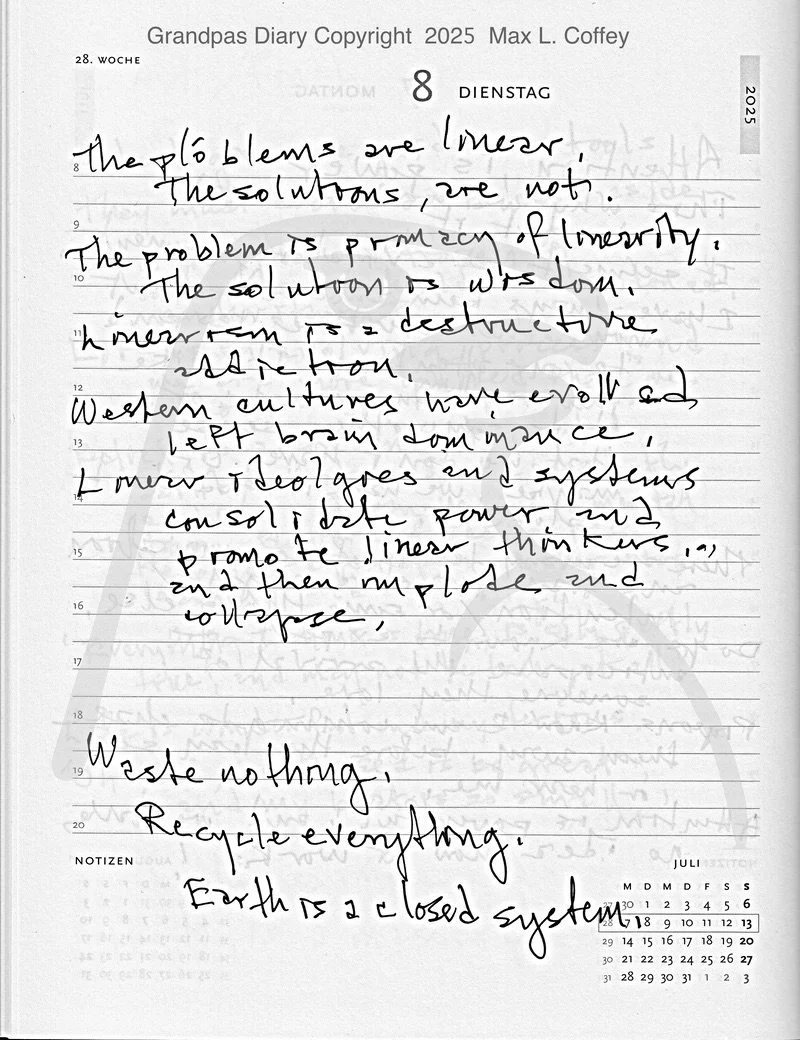 Grandpas Diary Copyright 2025 Max L. Coffey
28. WOCHE
8 DIENSTAG
2025
8 The problems are linear.
The solutions, are not.
9
The problem is primacy of linearity.
10 The solution is wisdom.
11 Linearism is a destructive
addiction.
12
Western cultures have evolved
13 left brain dominance.
Linear ideolgies and systems
14
consolidate power and
15 promote linear thinkers...
and then implode and
16 collapse.
17
18
Waste nothing.
19
Recycle everything.
20
NOTIZEN
JULI
Earth is a closed system.
M D M D F S S
27 30 1 2 3 4 5 6
28 7 8 9 10 11 12 13
29 14 15 16 17 18 19 20
30 21 22 23 24 25 26 27
31 28 29 30 31 1 2 3